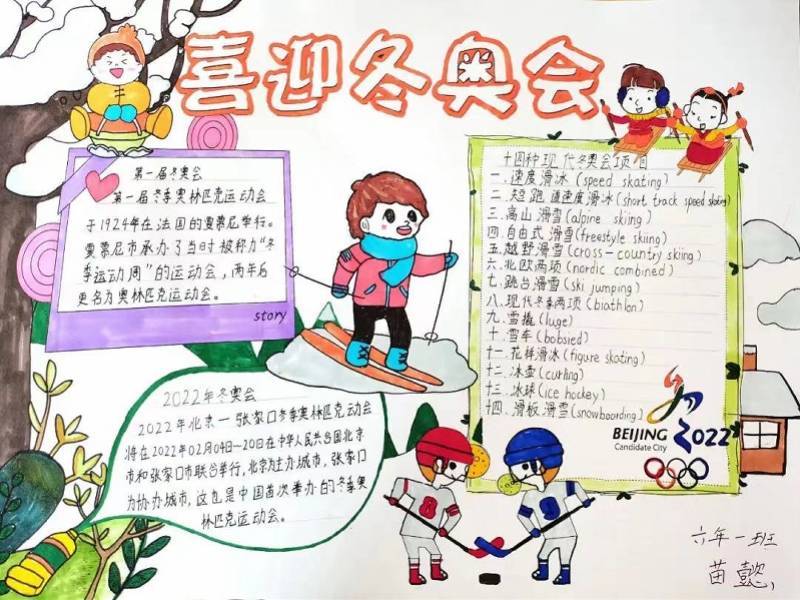 喜迎冬奥会
第一届冬奥会
第一届冬季奥林匹克运动会
于1924年在法国的夏慕尼举行。
夏慕尼市承办了当时被称为“冬
季运动周”的运动会，两年后
更名为奥林匹克运动会。
story
十四种现代冬奥会项目
一.速度滑冰(speed skating)
二.短跑道速度滑冰(short track speed skating)
三.高山滑雪(alpine skiing)
四.自由式滑雪(freestyle skiing)
五.越野滑雪(cross-country skiing)
六.北欧两项(nordic combined)
七.跳台滑雪(ski jumping)
八.现代冬季两项(biathlon)
九.雪撬(luge)
十.雪车(bobsied)
十一.花样滑冰(figure skating)
十二.冰壶(curling)
十三.冰球(ice hockey)
十四.滑板滑雪(snowboarding)
BEIJING 2022
Candidate City
2022年冬奥会
2022年北京—张家口冬季奥林匹克运动会
将在2022年02月04日—20日在中华人民共和国北京
市和张家口市联合举行，北京为主办城市，张家口
为协办城市，这也是中国首次举办的冬季奥
林匹克运动会。
8
9
六年一班
苗懿